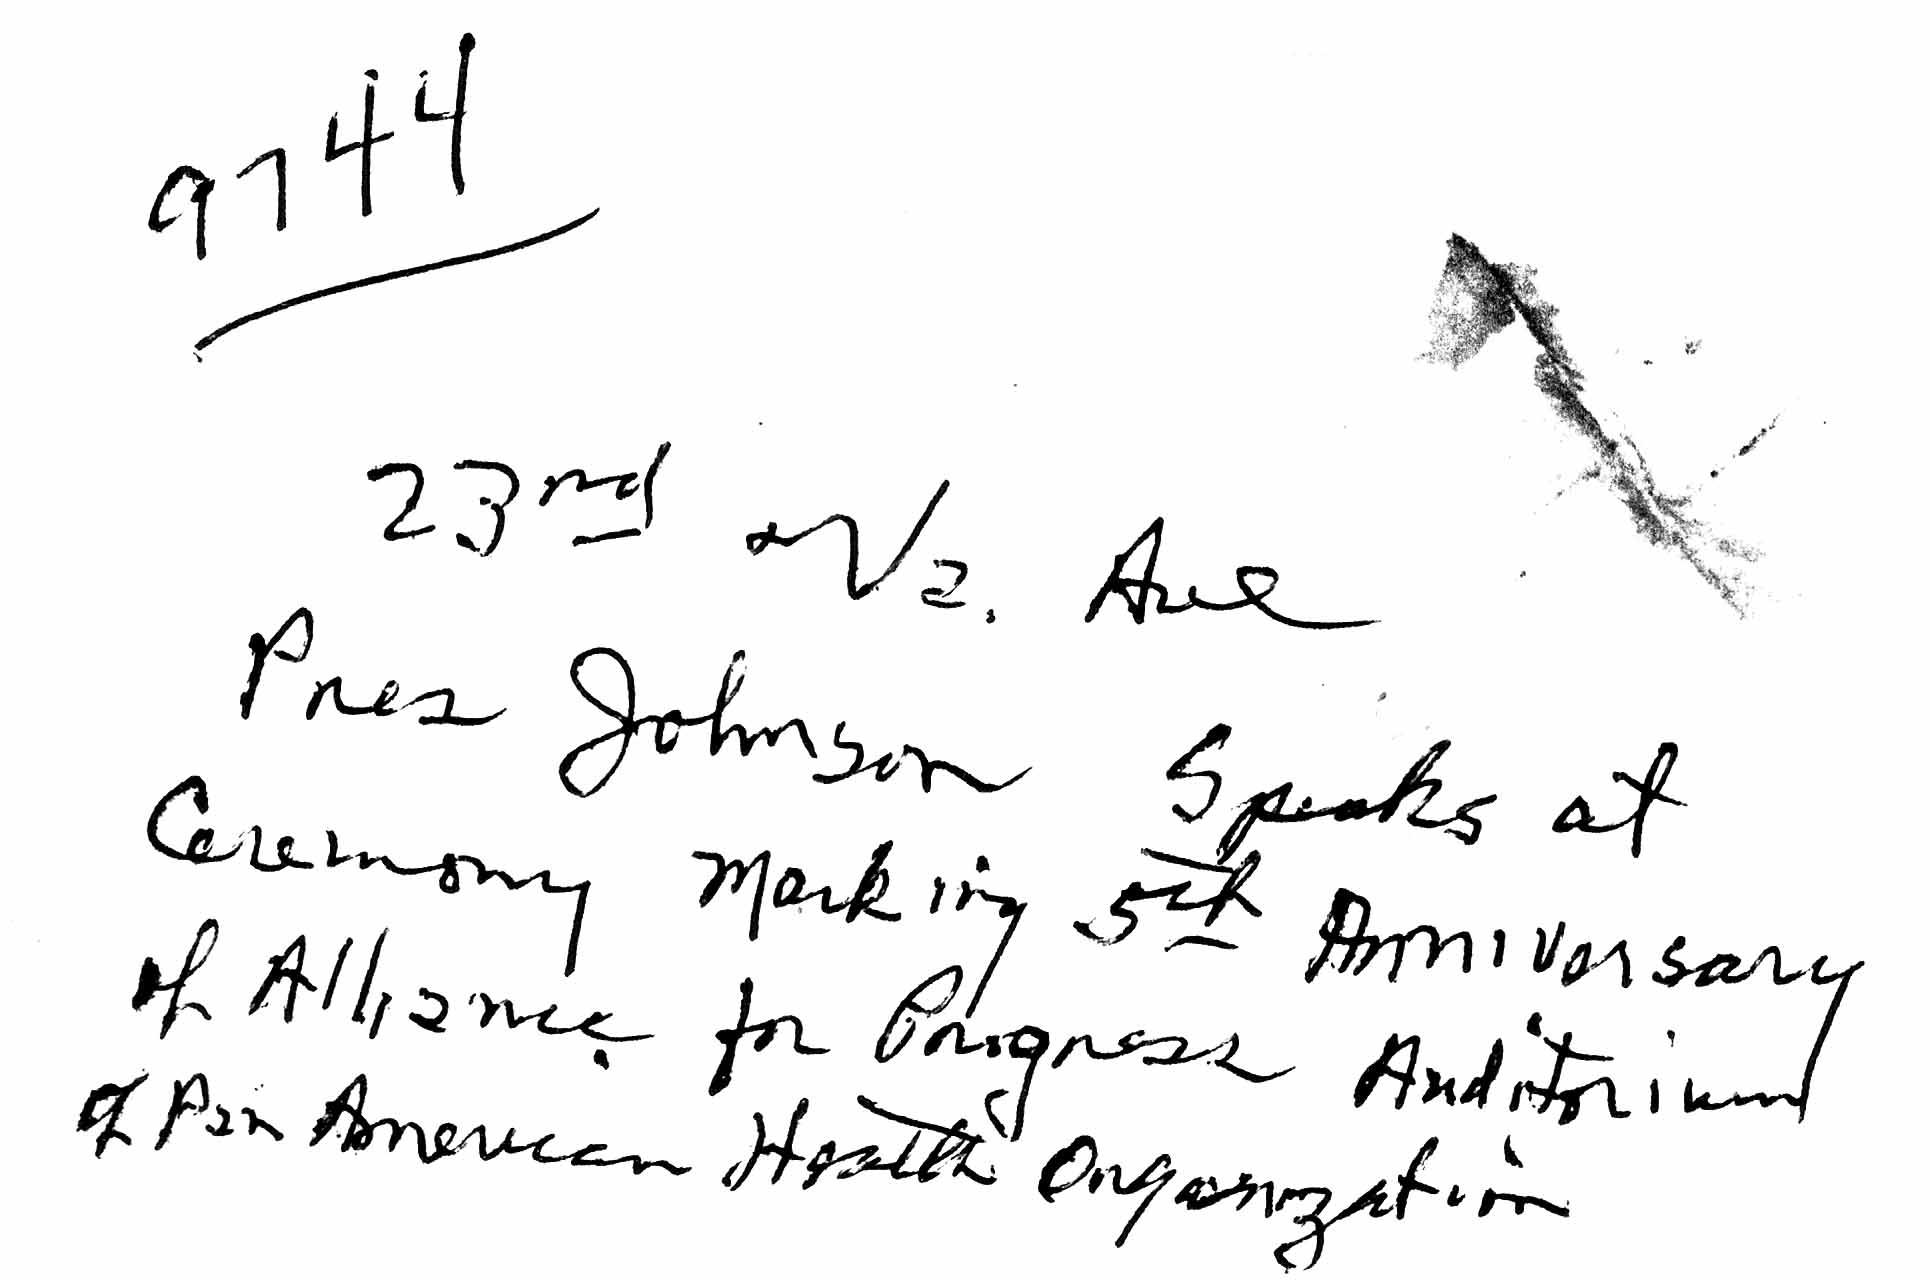 9744
23rd + Va. Ave
Pres Johnson Speaks at
Ceremony Marking 5th Anniversary
of Alliance for Progress Auditorium
of Pan American Health Organization